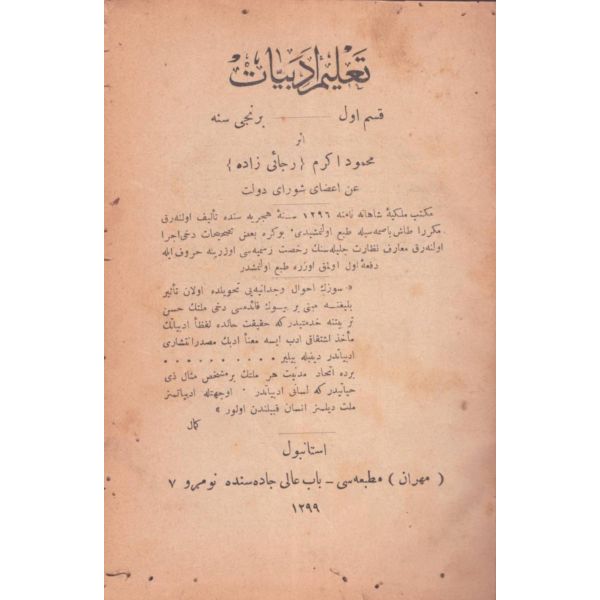 تعليم ادبيات
قسم اول —— برنجى سنه
اثر
محمود اكرم {رجائى زاده}
عن اعضاى شوراى دولت
مكتب ملكيهٔ شاهانه نامنه ١٢٩٦ سنهٔ هجريه سنده تأليف اولنه رق
مكررا طاش باصمه سيله طبع اولنمشيدى بو كره بعض تصحيحات دخى اجرا
اولنه رق معارف نظارت جليله سنك رخصت رسميه سى اوزرينه حروف ايله
دفعهٔ اول اولمق اوزره طبع اولنمشدر
« سوزك احوال وجدانيه يى تحويلده اولان تأثير
بليغنه مبنى بر بيوك فائده سى دخى ملتك حسن
تربيتنه خدمتيدر كه حقيقت حالده لفظاً ادبياتك
مأخذ اشتقاقى ادب ايسه معناً ادبك مصدر انتشارى
ادبياتدر دينيله بيلير . . . . . . . . . .
برده اتحاد مدنيت هر ملتك بر مشخص مثال ذى
حياتيدر كه لسانى ادبياتدر . اوجهتله ادبياتسز
ملت ديلسز انسان قبيلندن اولور »
كمال
استانبول
( مهران ) مطبعه سى - باب عالى جاده سنده نومرو ٧
١٢٩٩